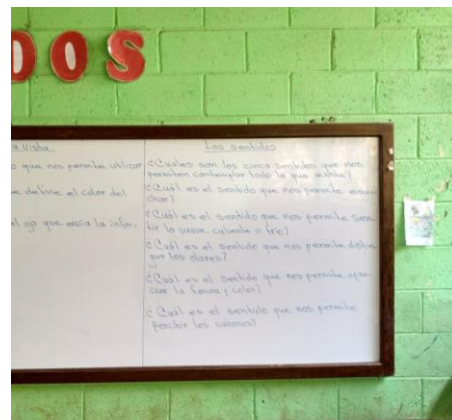 DOS
a vista
o que nos permite utilizar
e define el color del
el ojo que envía la infor-
Los sentidos
¿Cuáles son los cinco sentidos que nos
permiten contemplar todo lo que existe?
¿Cuál es el sentido que nos permite escu-
char?
¿Cuál es el sentido que nos permite sen-
tir lo suave, caliente o frío?
¿Cuál es el sentido que nos permite distin-
guir los olores?
¿Cuál es el sentido que nos permite apre-
ciar la forma y color?
¿Cuál es el sentido que nos permite
percibir los sabores?